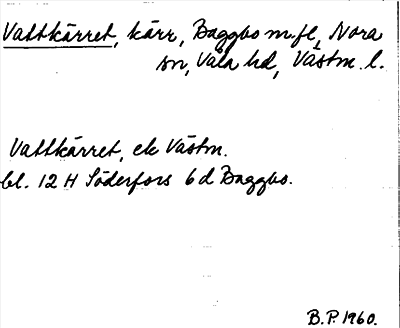 Vattkärret, kärr, Baggbo m.fl., Nora
sn, Våla hd, Västm. l.
Vattkärret, ek Västm.
bl. 12 H Söderfors 6 d Baggbo.
B.P. 1960.